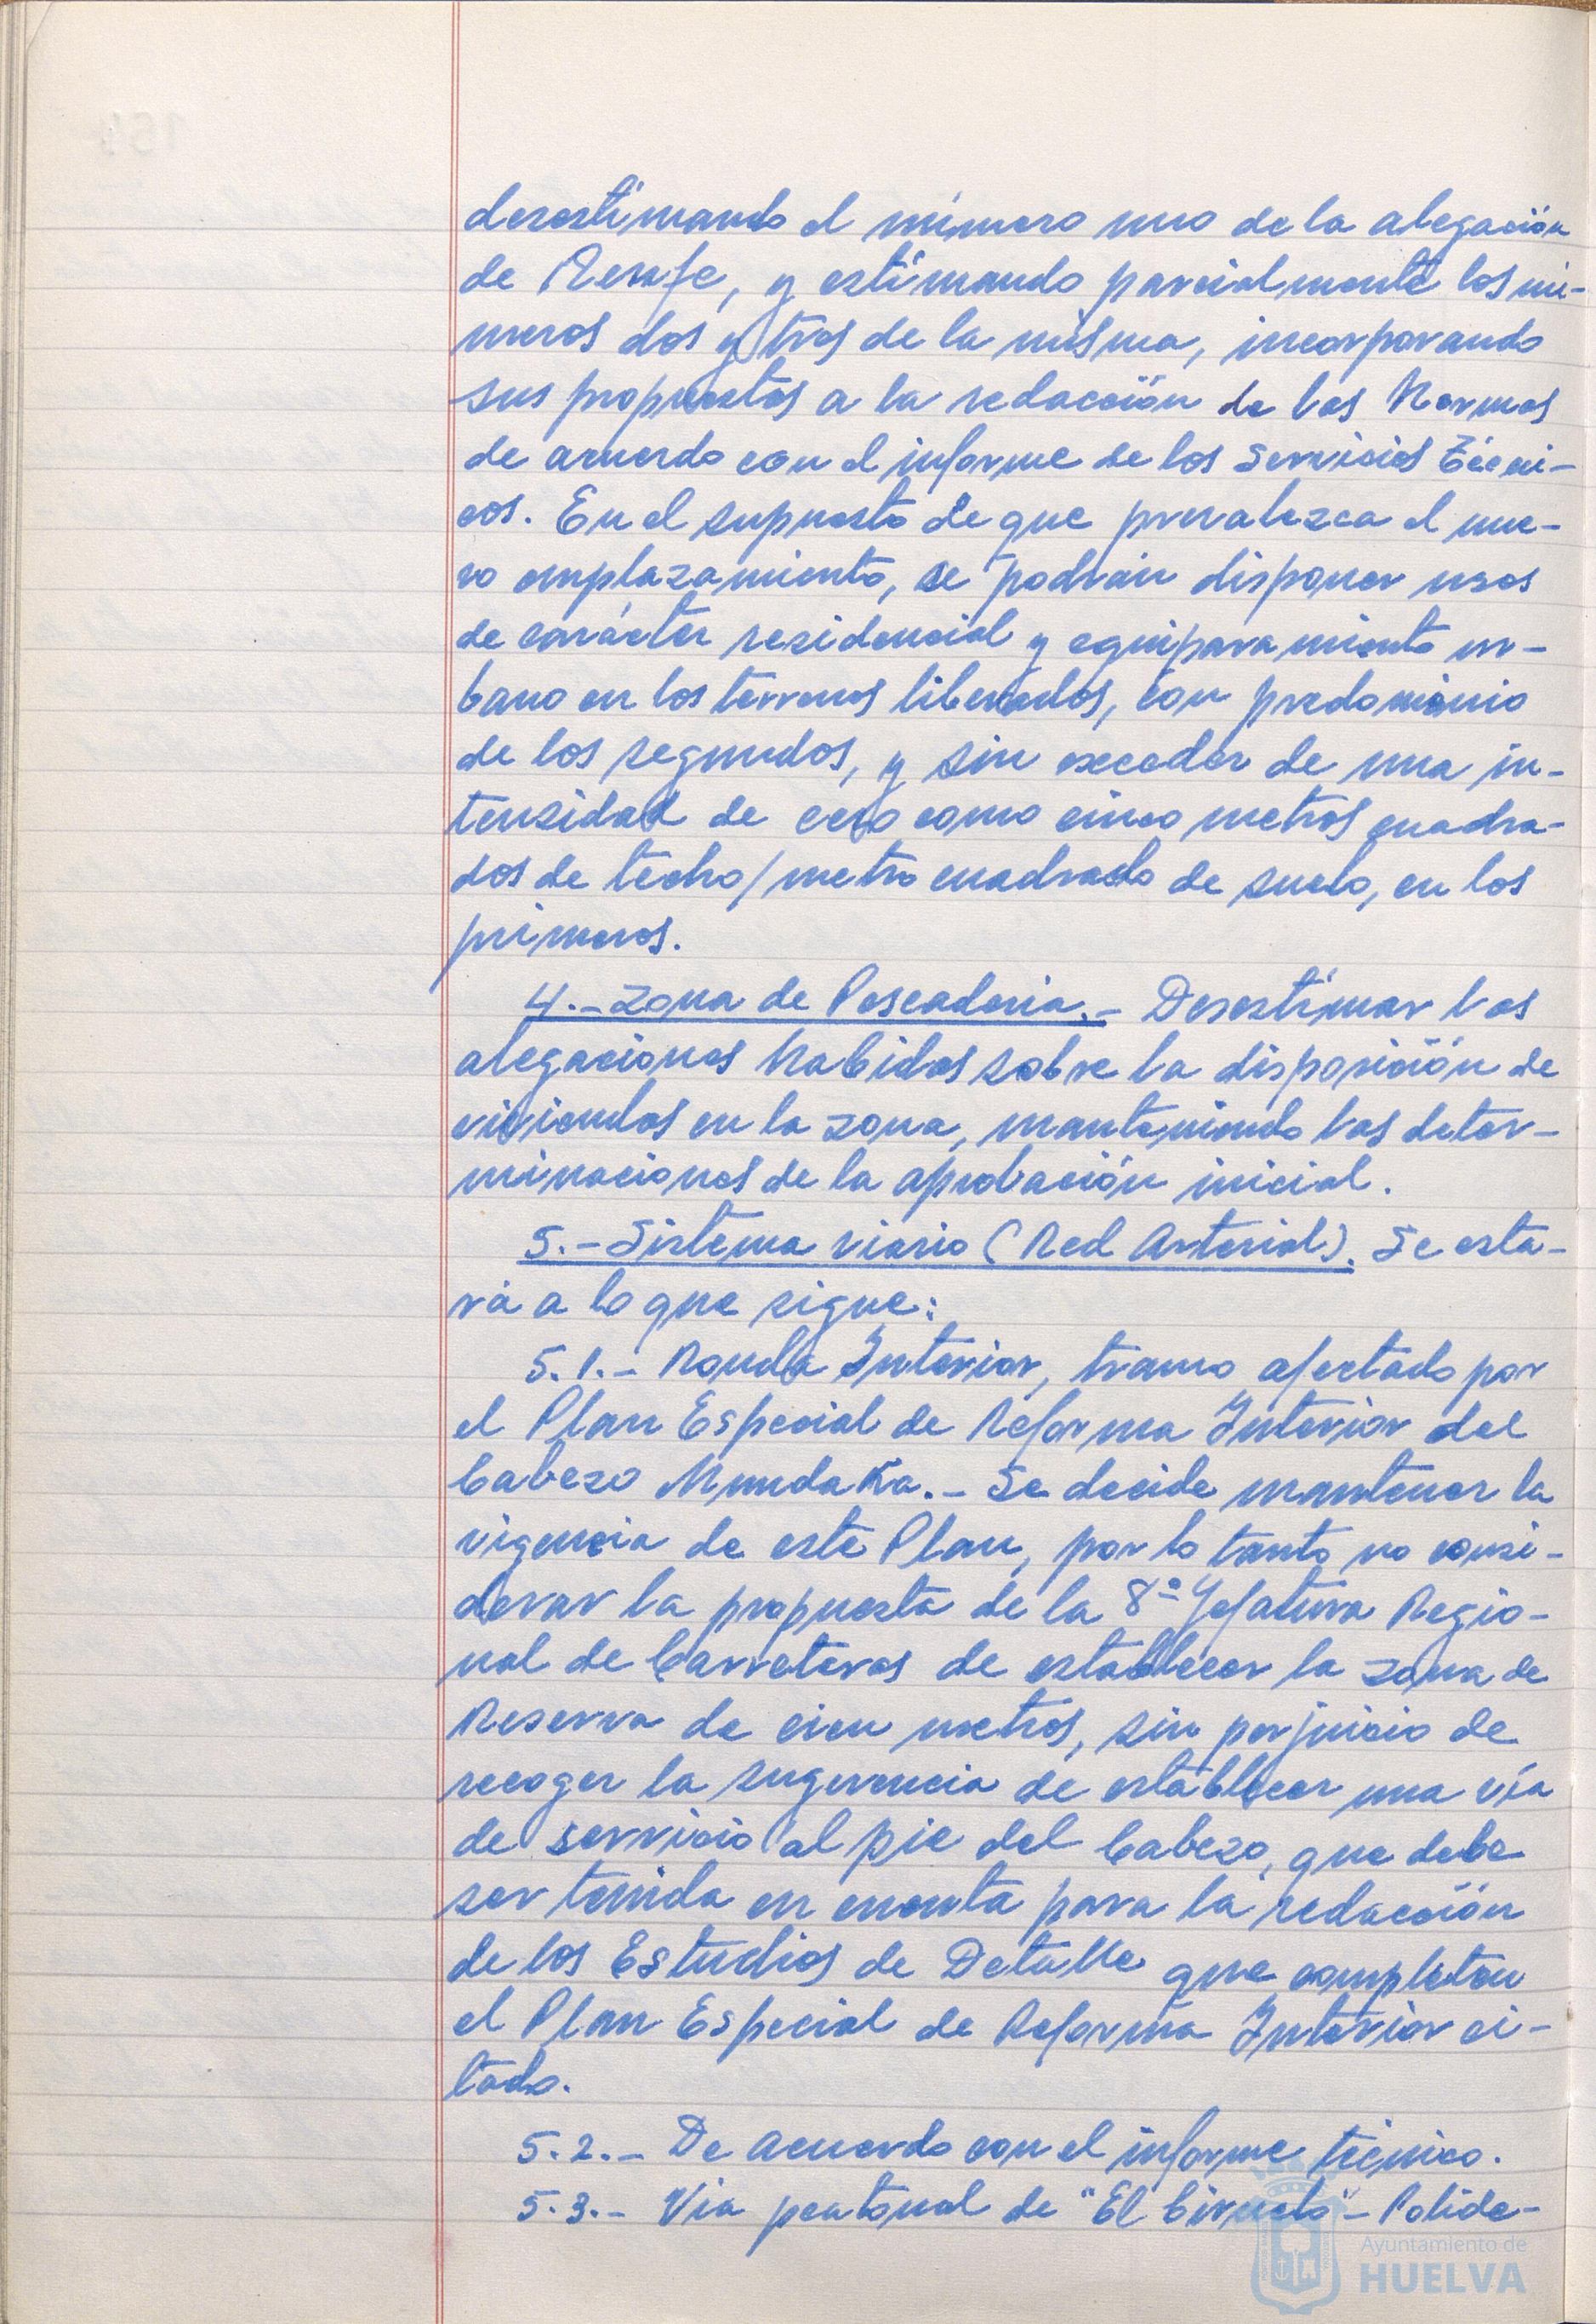 desestimando el número uno de la alegación
de Renfe, y estimando parcialmente los nú-
meros dos y tres de la misma, incorporando
sus propuestas a la redacción de las Normas
de acuerdo con el informe de los Servicios Técni-
cos. En el supuesto de que prevalezca el nue-
vo emplazamiento, se podrán disponer usos
de carácter residencial y equiparamiento ur-
bano en los terrenos liberados, con predominio
de los segundos, y sin exceder de una in-
tensidad de cero como cinco metros cuadra-
dos de techo/metro cuadrado de suelo, en los
primeros.
4.- Zona de Pescadería.- Desestimar las
alegaciones habidas sobre la disposición de
viviendas en la zona, manteniendo las deter-
minaciones de la aprobación inicial.
5.- Sistema viario (Red Arterial). Se esta-
rá a lo que sigue:
5.1.- Ronda Interior, tramo afectado por
el Plan Especial de Reforma Interior del
Cabezo Mundaka.- Se decide mantener la
vigencia de este Plan, por lo tanto no consi-
derar la propuesta de la 8ª Jefatura Regio-
nal de Carreteras de establecer la zona de
Reserva de cien metros, sin perjuicio de
recoger la sugerencia de establecer una vía
de servicio al pie del Cabezo, que debe
ser tenida en cuenta para la redacción
de los Estudios de Detalle que completen
el Plan Especial de Reforma Interior ci-
tado.
5.2.- De acuerdo con el informe técnico.
5.3.- Vía peatonal de "El Ciruelo" - Polide-
Ayuntamiento de
HUELVA